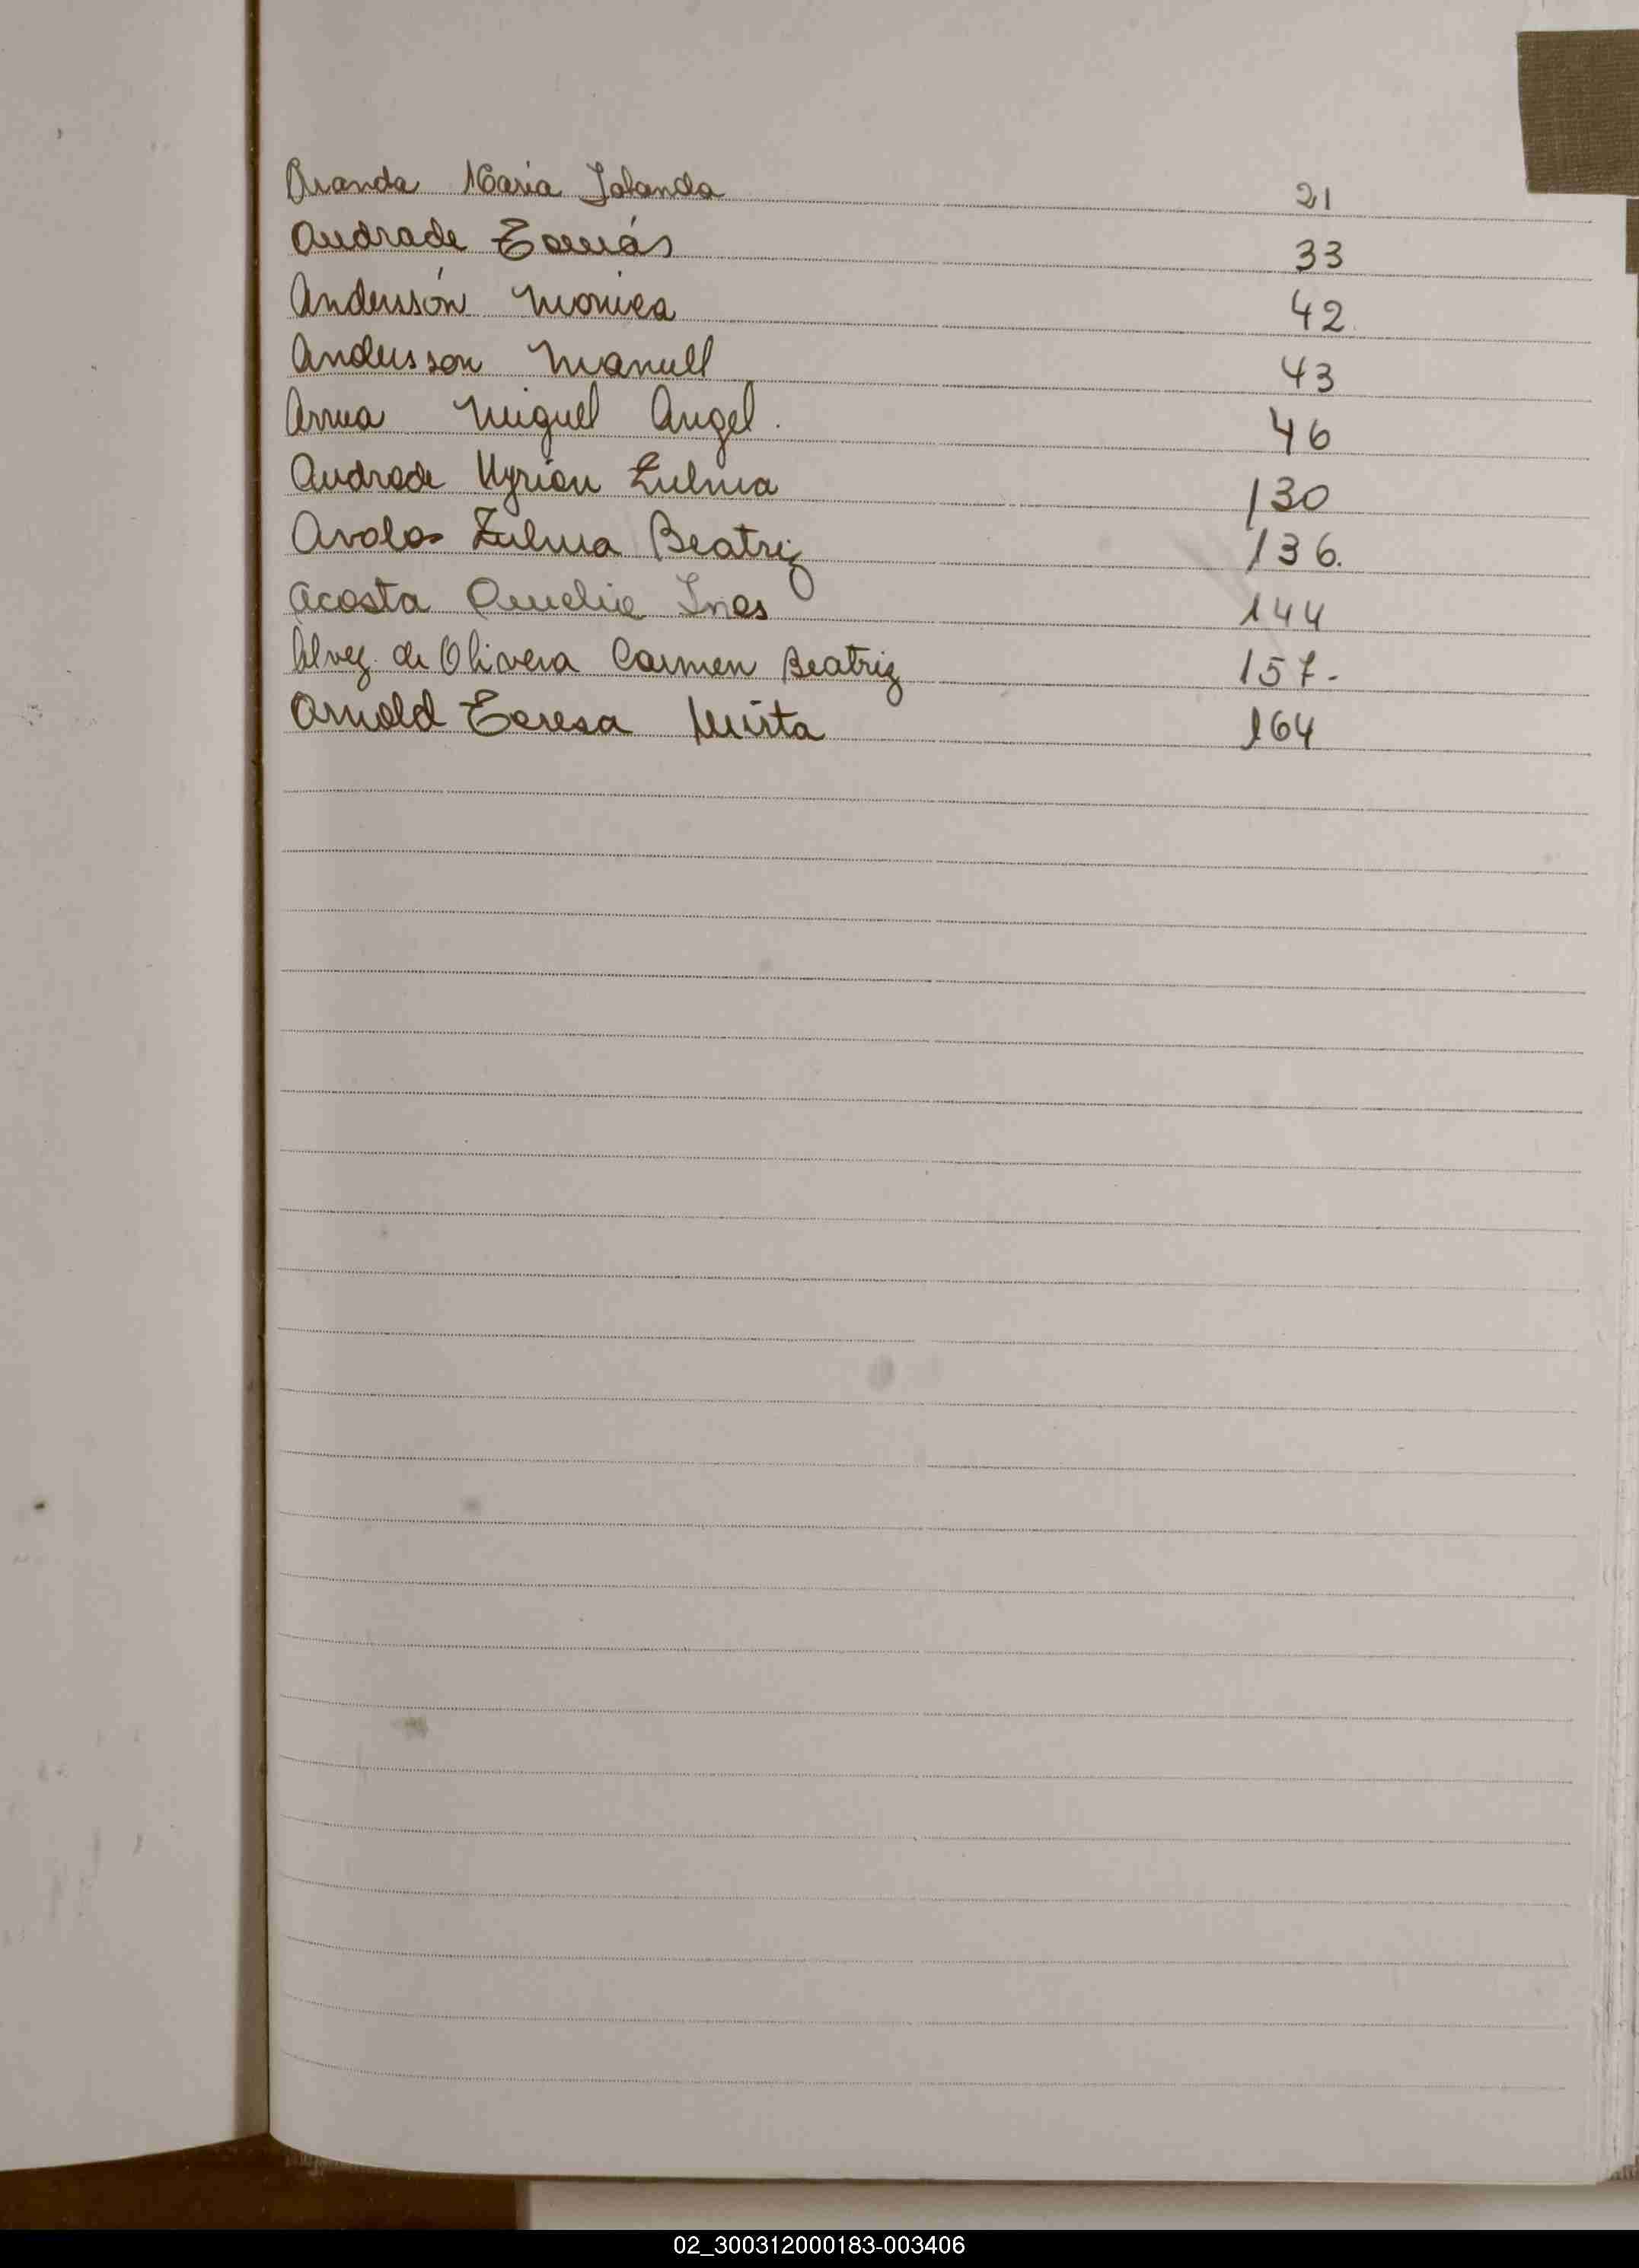 Aranda Maria Jolanda 21
Andrade Tomás 33
Andersón Monica 42
Andersson Manuel 43
Arrua Miguel Angel. 46
Andrade Myrian Zulma 130
Avalos Zulma Beatriz 136.
Acosta Amelia Ines 144
Alvez de Olivera Carmen Beatriz 157-
Arnold Teresa Mirta 164
02_300312000183-003406